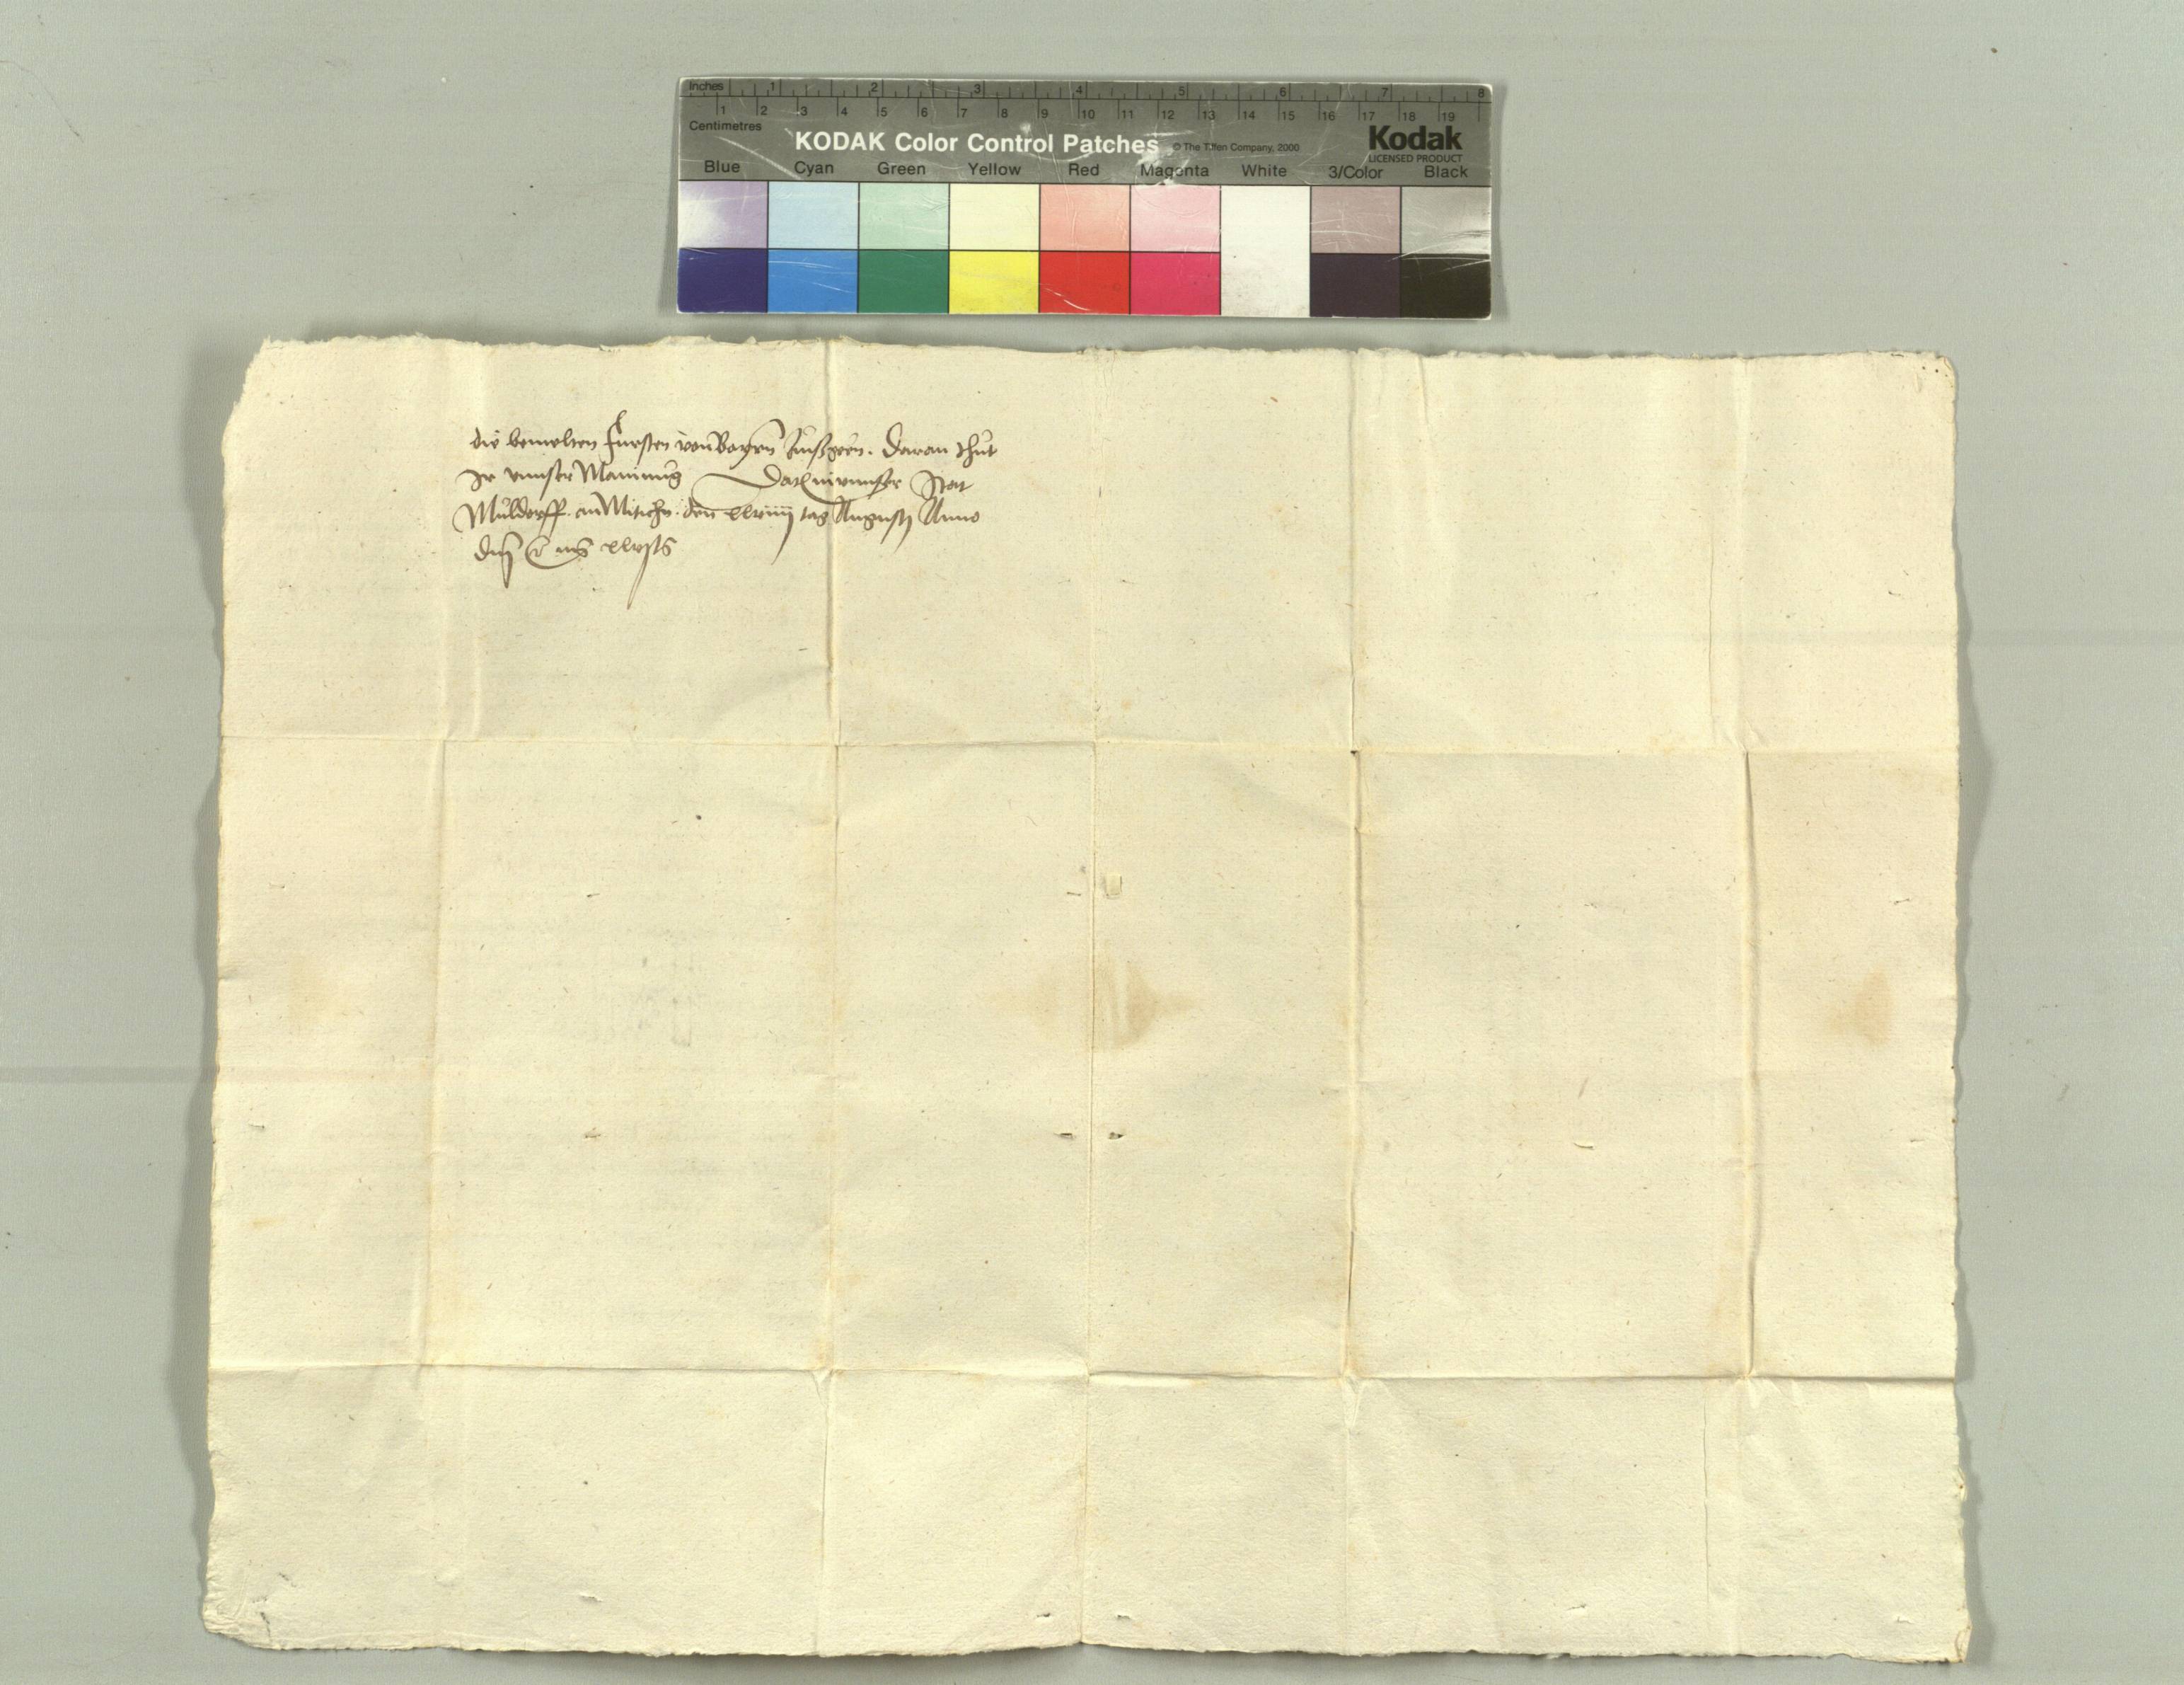 Inches 1 2 3 4 5 6 7 8
1 2 3 4 5 6 7 8 9 10 11 12 13 14 15 16 17 18 19
Centimetres
KODAK Color Control Patches © The Tiffen Company, 2000 Kodak
LICENSED PRODUCT
Blue Cyan Green Yellow Red Magenta White 3/Color Black
die bemelten fursten von Bayrn daran thut
Ir vnnser Mainung Dat in vnnser Stat
Muldorff am Mitichn den tag Augusti Anno
dnj